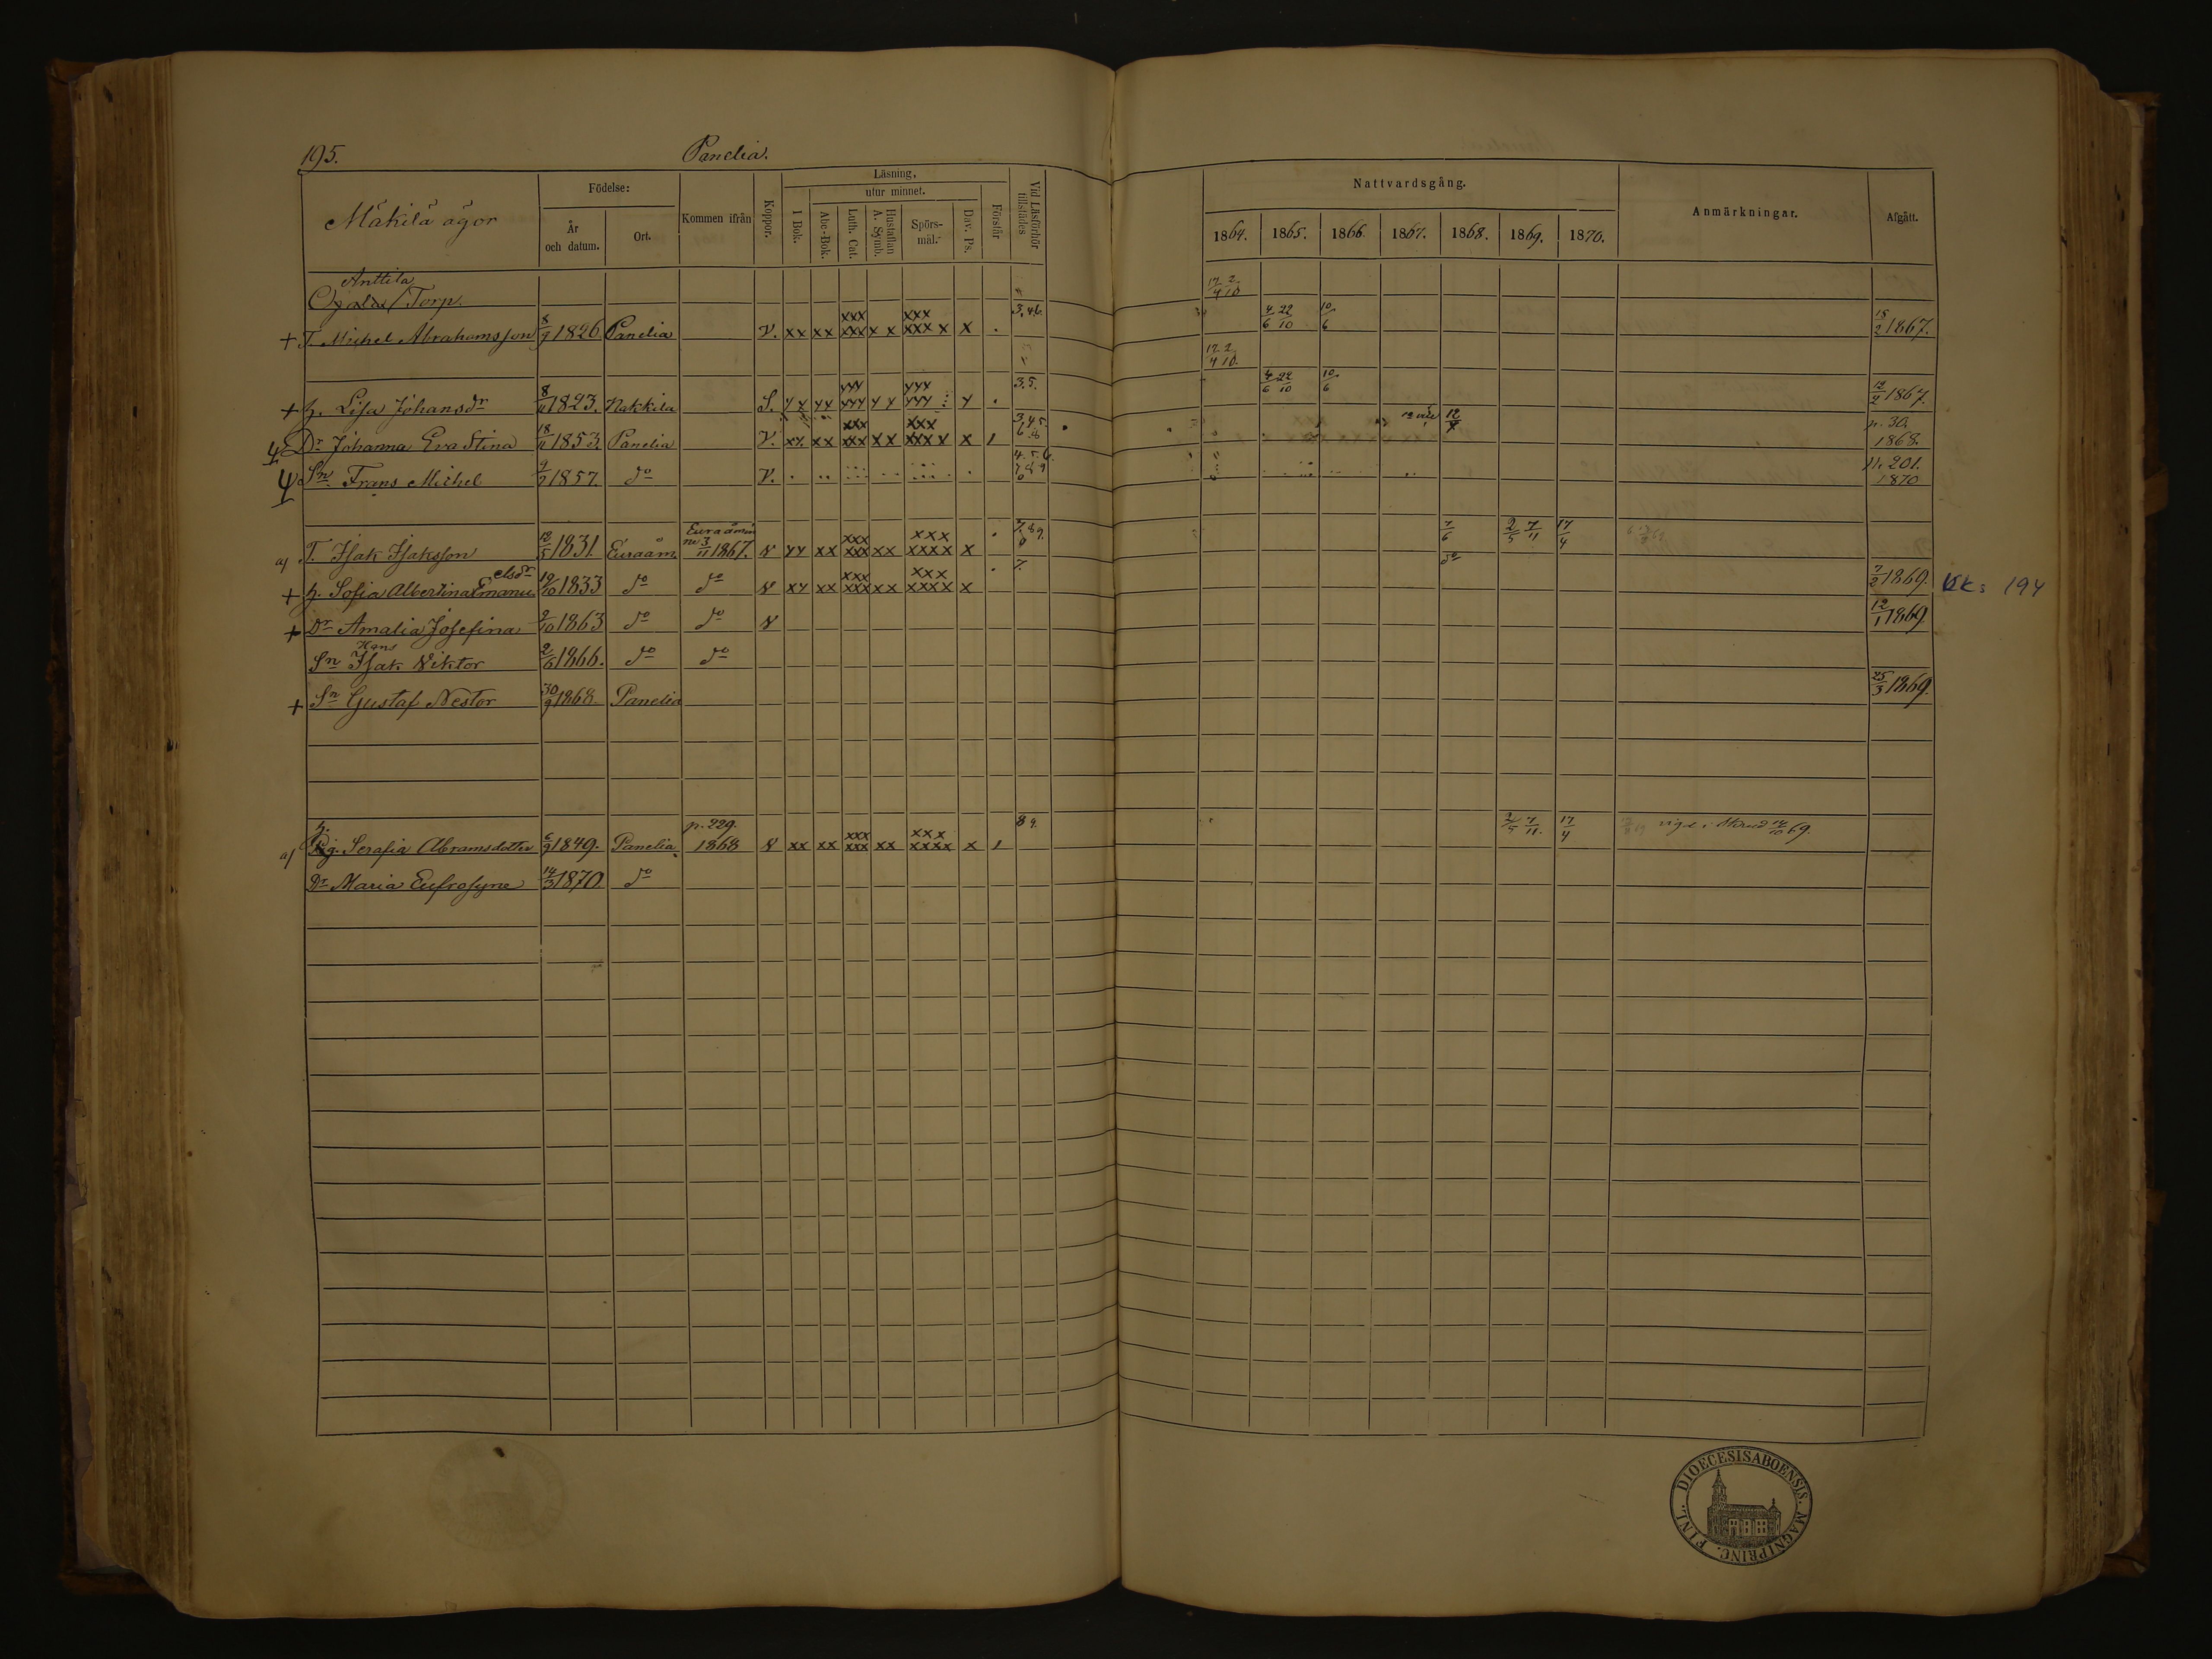 195. Panelia.
Mäkilä ägor
Födelse:
År och datum.
Ort.
Kommen ifrån
Koppor.
Läsning,
I Bok.
utur minnet.
Abc-Bok.
Luth. Cat.
Hustaflan A. Symb.
Spörsmål.
Dav. Ps.
Förstår
Vid Läsförhör tillstädes
Nattvardsgång.
1864. 1865. 1866. 1867. 1868. 1869. 1870.
Anmärkningar.
Afgått.
Anttila
Torp. 17/4 2/10
+ T. Michel Abrahamsson 8/9 1826 Panelia V. xx xx xxx xxx x x xxx xxx x x . 3.46. 4/6 22/10 10/6 18/2 1867.
17/4 2/10.
+ h. Lisa Johansdr 8/11 1823. Nakkila S. 3.5. 4/6 22/10 10/6 12/2 1867.
Dr Johanna Eva Stina 18/11 1853. Panelia V. xx xx xxx xxx x x xxx xxx x x 3,4 5. 6 p. 30. 1868.
Sn Frans Michel 9/2 1857. do V. 4. 5. 6. 7 8 9 p. 201. 1870
a) T. Isak Isaksson 12/5 1831. Euraåm. Euraåminne 3/11 1867. xx xxx xxx xx xxx xxxx x . 7. 8 9. 7/6 2/5 7/11 17/4
+ h. Sofia Albertina Emanuelsdr 19/10 1833 do do xx xx xxx xxx xx xxx xxxx x . 7. do 7/2 1869. KK: 194
+ Dr Amalia Josefina 9/10 1863 do do 12/1 1869.
Sn Isak Viktor 2/6 1866. do do
Hans
+ Sn Gustaf Nestor 30/9 1868. Panelia 25/3 1869.
h. p. 229.
a) Pig. Serafia Abramsdotter 6/9 1849. Panelia 1868 xx xx xxx xxx xx xxx xxxx x 8 9. 2/5 7/11. 17/4 69.
Dr Maria Eufrosyne 14/3 1870 do
DIOECESIS ABOENSIS. MAGNI PRINC. FINL.